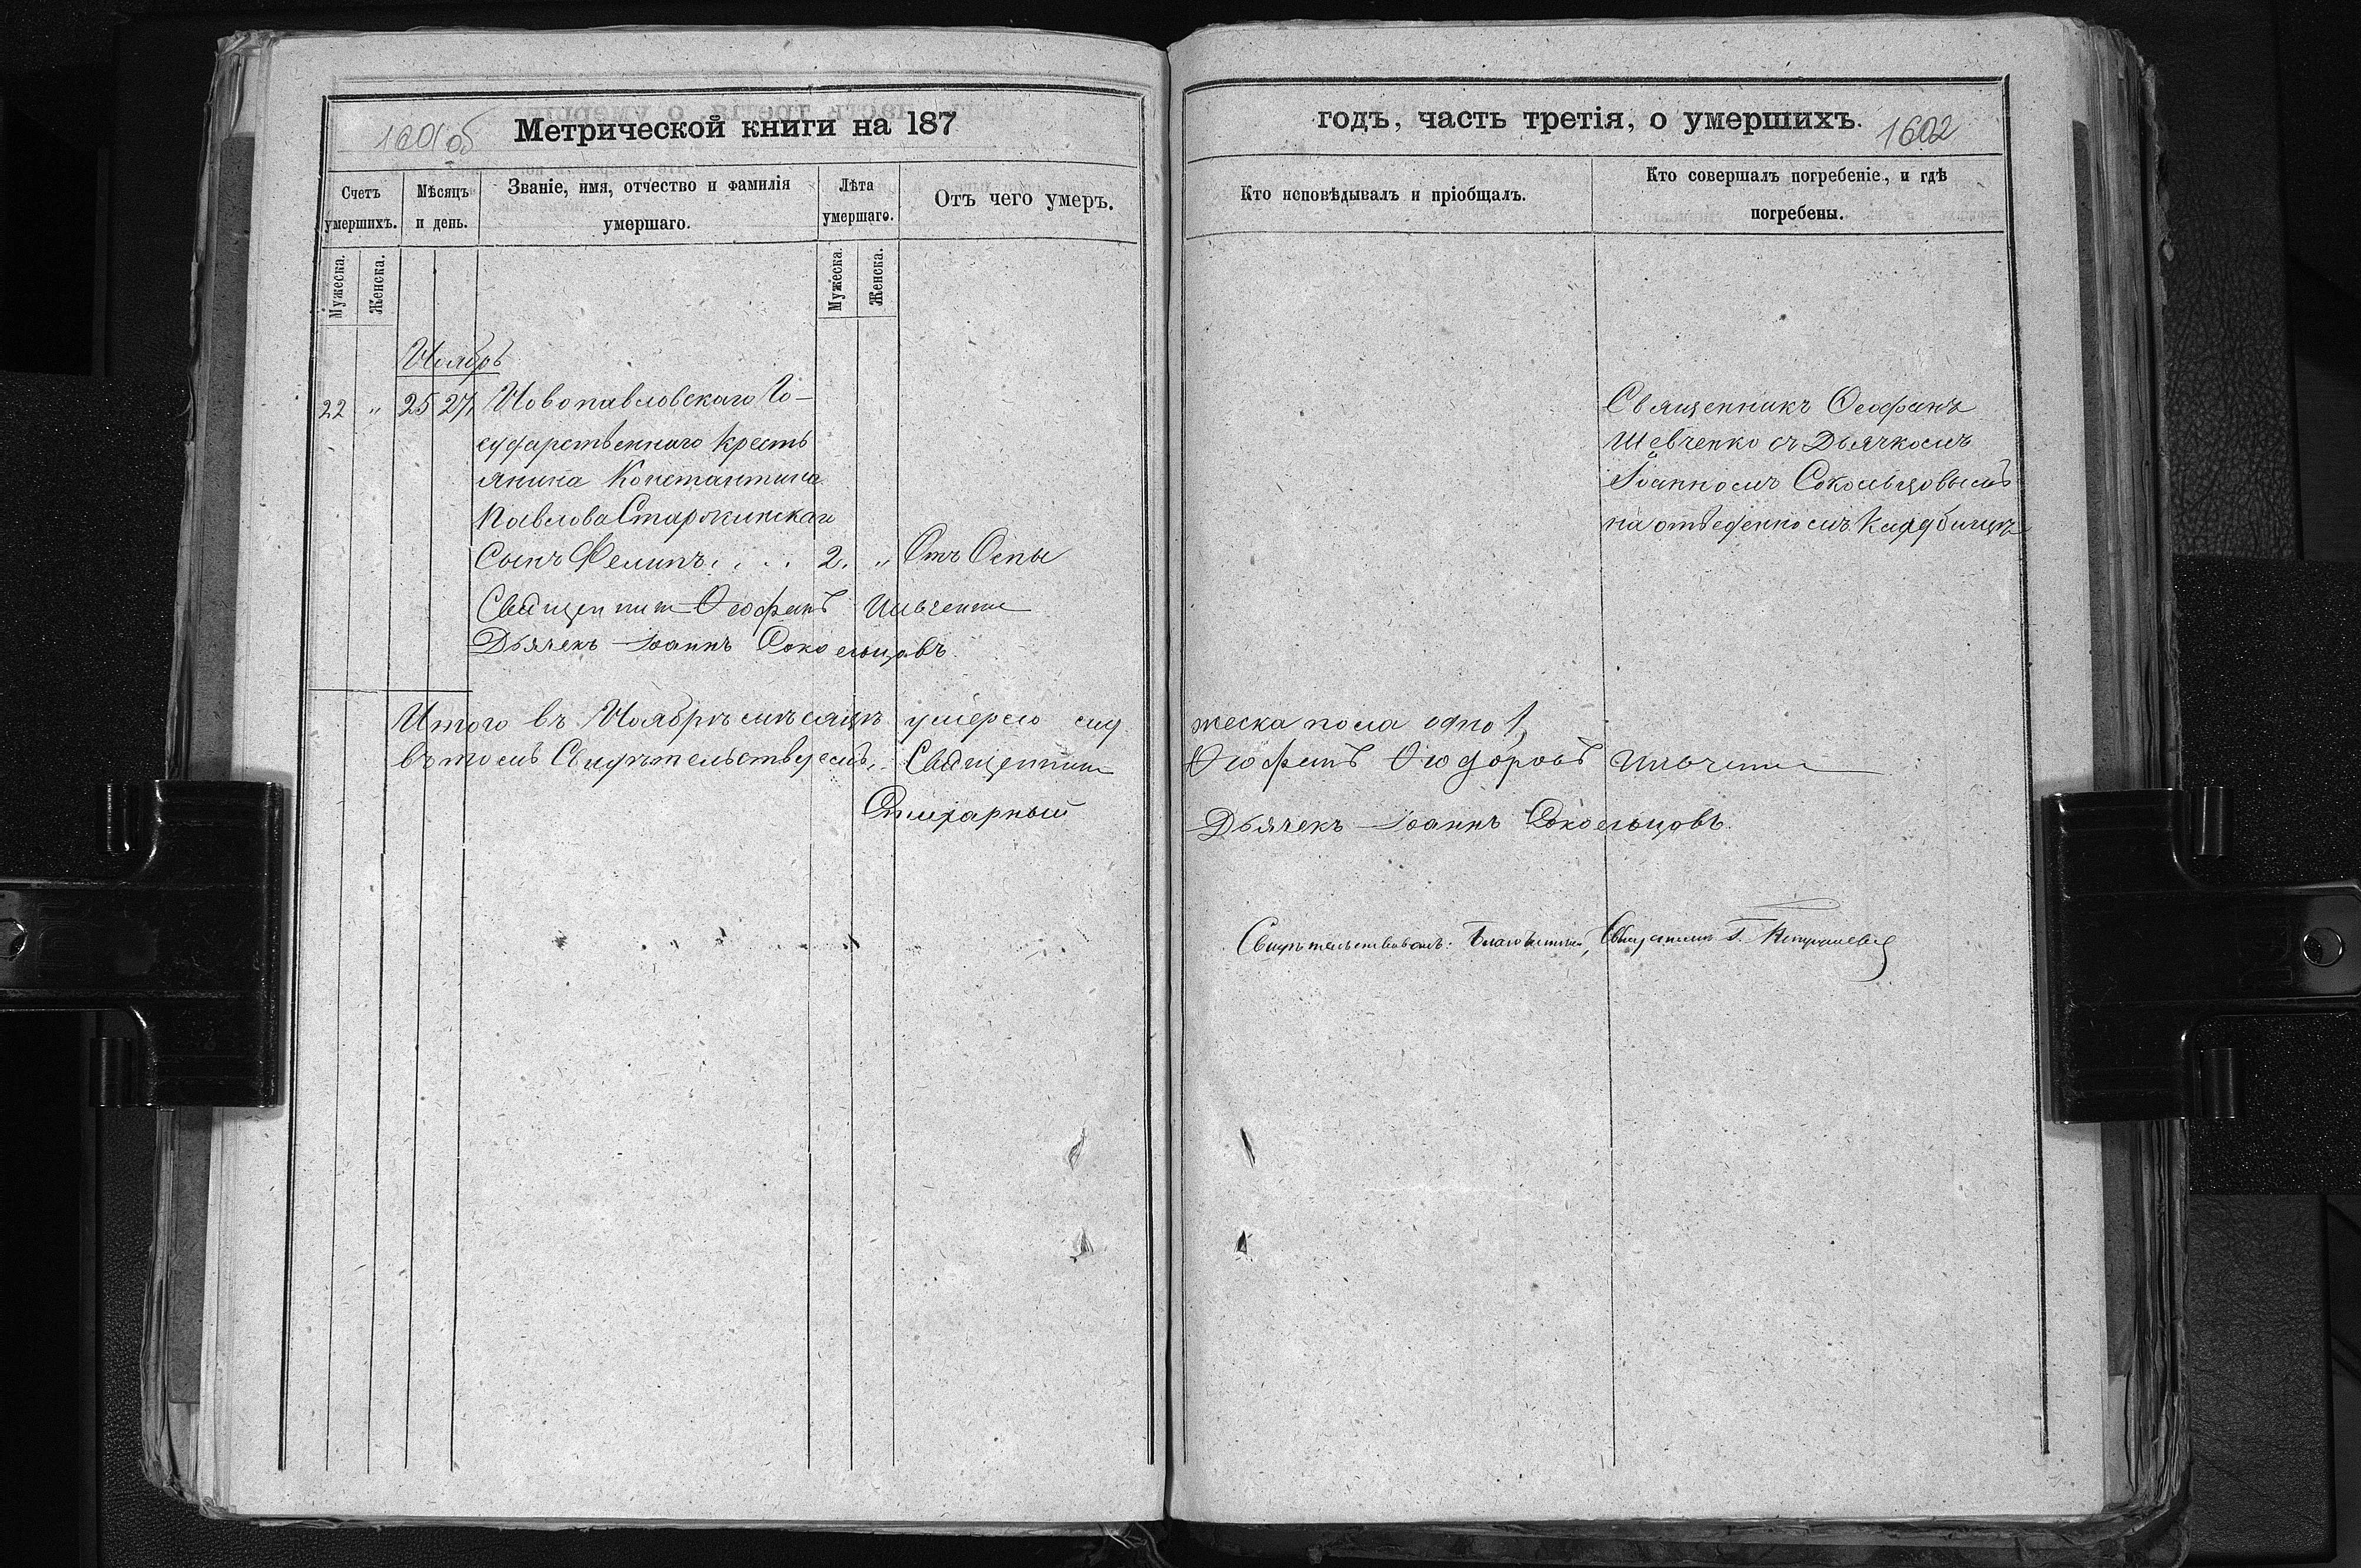 1601об
Метрической книги на 187
Счетъ умершихъ.
Мѣсяцъ и день.
Званіе, имя, отчество и фамилія умершаго.
Лѣта умершаго.
Отъ чего умеръ.
Мужеска.
Женска.
Мужеска
Женска.
Ноябрь
22 " 25 27 Новопавловскаго Го-
сударственнаго кресть
янина Константина
Павлова
Сынъ Фелипъ. . . . 2. " Отъ Оспы
Священникъ Ѳеофанъ Шевченко
Дьячекъ Іоаннъ Сокольцовъ.
Итого въ Ноябрѣ мѣсяцѣ умерло му
въ томъ Свидѣтельствуемъ, Священникъ
Стихарный
годъ, часть третія, о умершихъ.
1602
Кто исповѣдывалъ и пріобщалъ.
Кто совершалъ погребеніе, и гдѣ
погребены.
Священникъ Ѳеофанъ
Шевченко съ Дьячкомъ
Іоанномъ Сокольцовымъ
на отведенномъ кладбищѣ
жеска пола одно 1,
Ѳеофанъ Ѳеодоровъ Шевченко
Дьячекъ Іоаннъ Сокольцовъ.
Свидѣтельствовалъ: Благочинный, Священникъ